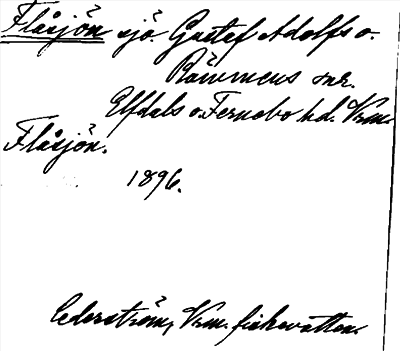 Flåsjön sjö. Gustaf Adolfs o.
Rämmens snr.
Elfdals o. Fernebo hd. Vrm.
Flåsjön.
1896.
Cederström, Vrm. fiskevatten.